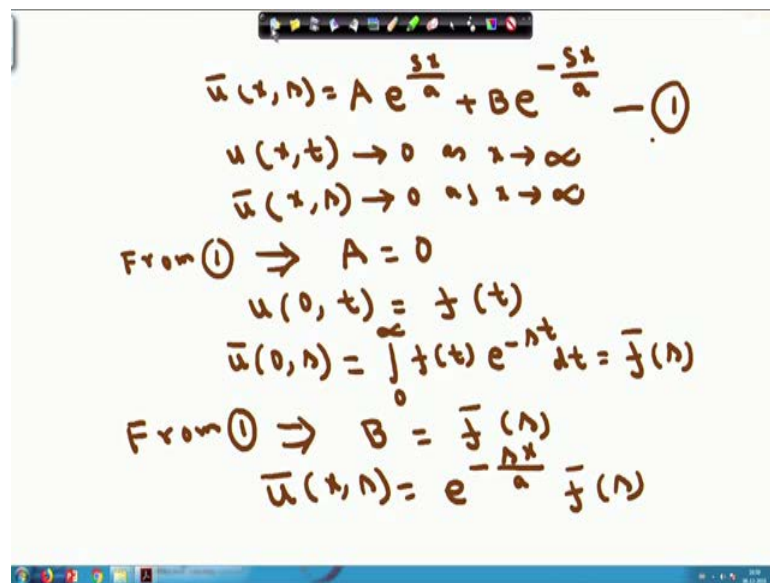 ū(x,s) = A e^{sx/a} + B e^{-sx/a} – ①
u(x,t) → 0 as x → ∞
ū(x,s) → 0 as x → ∞
From ① ⇒ A = 0
u(0,t) = f(t)
ū(0,s) = ∫₀^∞ f(t) e^{-st} dt = f̄(s)
From ① ⇒ B = f̄(s)
ū(x,s) = e^{-sx/a} f̄(s)